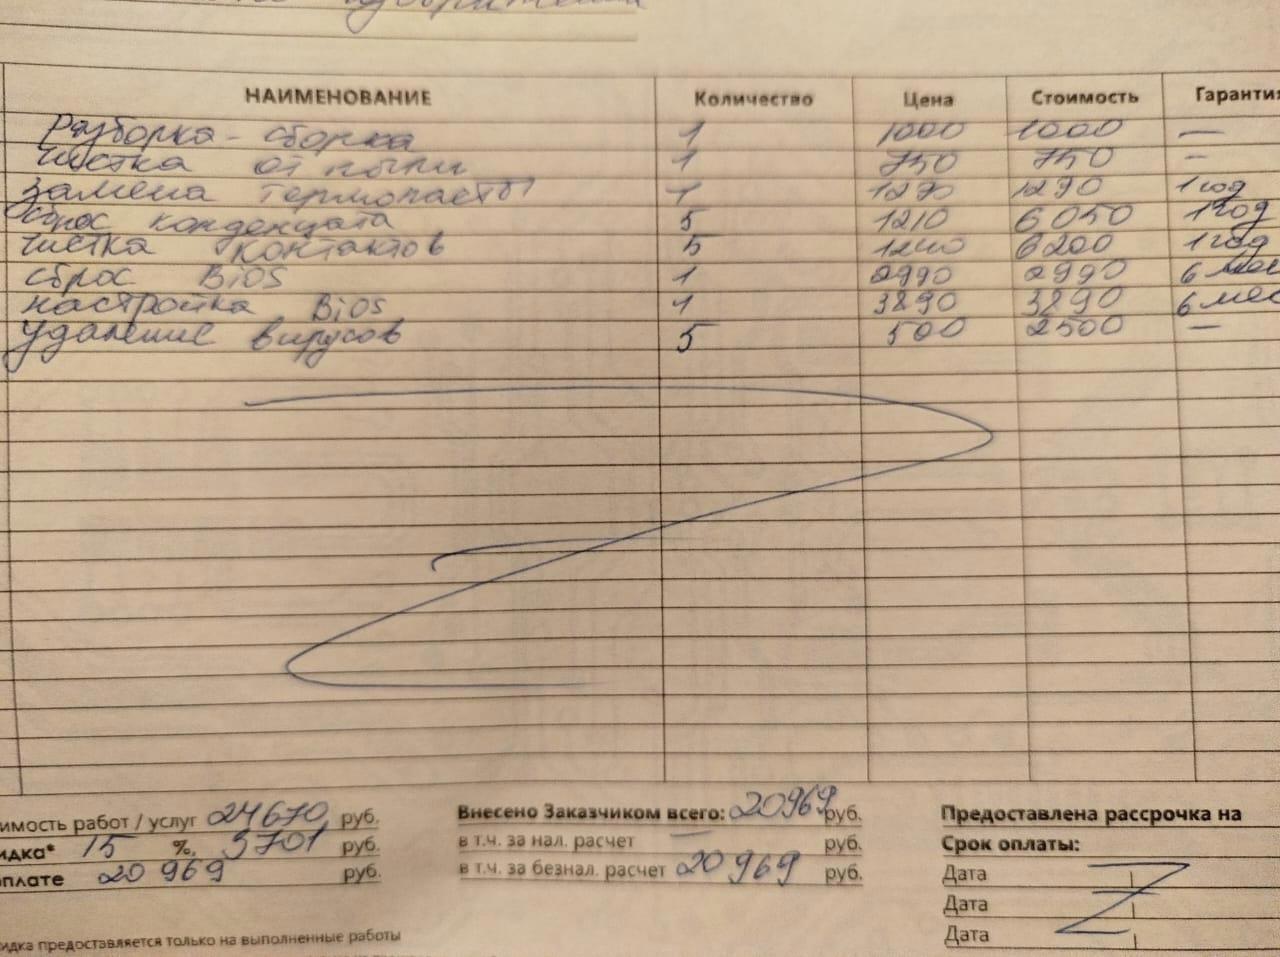 НАИМЕНОВАНИЕ Количество Цена Стоимость Гарантия
Разборка - сборка 1 1000 1000 —
чистка от пыли 1 750 750 —
Замена термопасты 1 1290 1290 1 год
сброс конденцата 5 1210 6050 1 год
чистка контактов 5 1240 6200 1 год
сброс BiOS 1 2990 2990 6 мес
настройка BiOS 1 3890 3890 6 мес
удаление вирусов 5 500 2500 —
имость работ / услуг 24670 руб. Внесено Заказчиком всего: 20969 руб. Предоставлена рассрочка на
идка* 15 %, 3701 руб. в т.ч. за нал. расчет — руб. Срок оплаты:
плате 20 969 руб. в т.ч. за безнал. расчет 20 969 руб. Дата
Дата
Дата
идка предоставляется только на выполненные работы